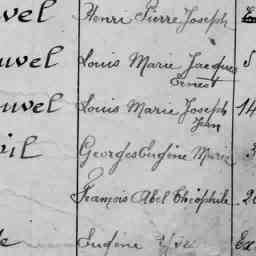 uvel Henri Pierre Joseph
uvel Louis Marie Jacques 5
Ernest
uvel Louis Marie Joseph 14
Jean
vil Georges Eugène Marie 3
François Abel Théophile 20
Eugène Ex